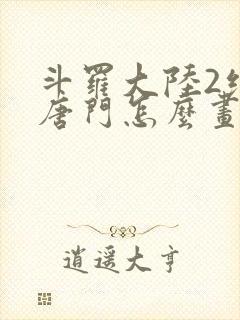 斗羅大陸2絕
唐門怎麼畫
逍遥大亨